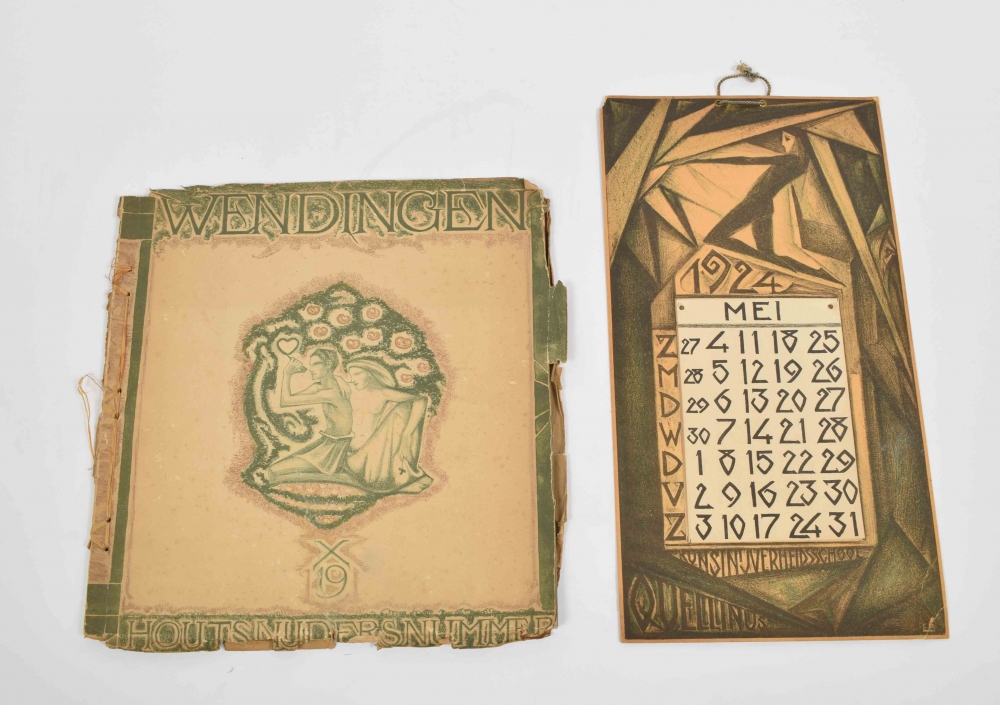 WENDINGEN
X
19
HOUTSNIJDERSNUMMER
1924
MEI
Z 27 4 11 18 25
M 28 5 12 19 26
D 29 6 13 20 27
W 30 7 14 21 28
D 1 8 15 22 29
V 2 9 16 23 30
Z 3 10 17 24 31
KUNSTNIJVERHEIDSSCHOOL
QUELLINUS